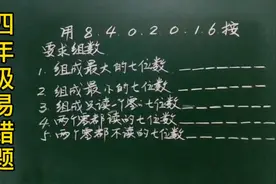 四年级易错题
用8.4.0.2.0.1.6按
要求组数
1.组成最大的七位数
2.组成最小的七位数
3.组成只读一个零的七位数
4.两个零都读的七位数
5.两个零都不读的七位数